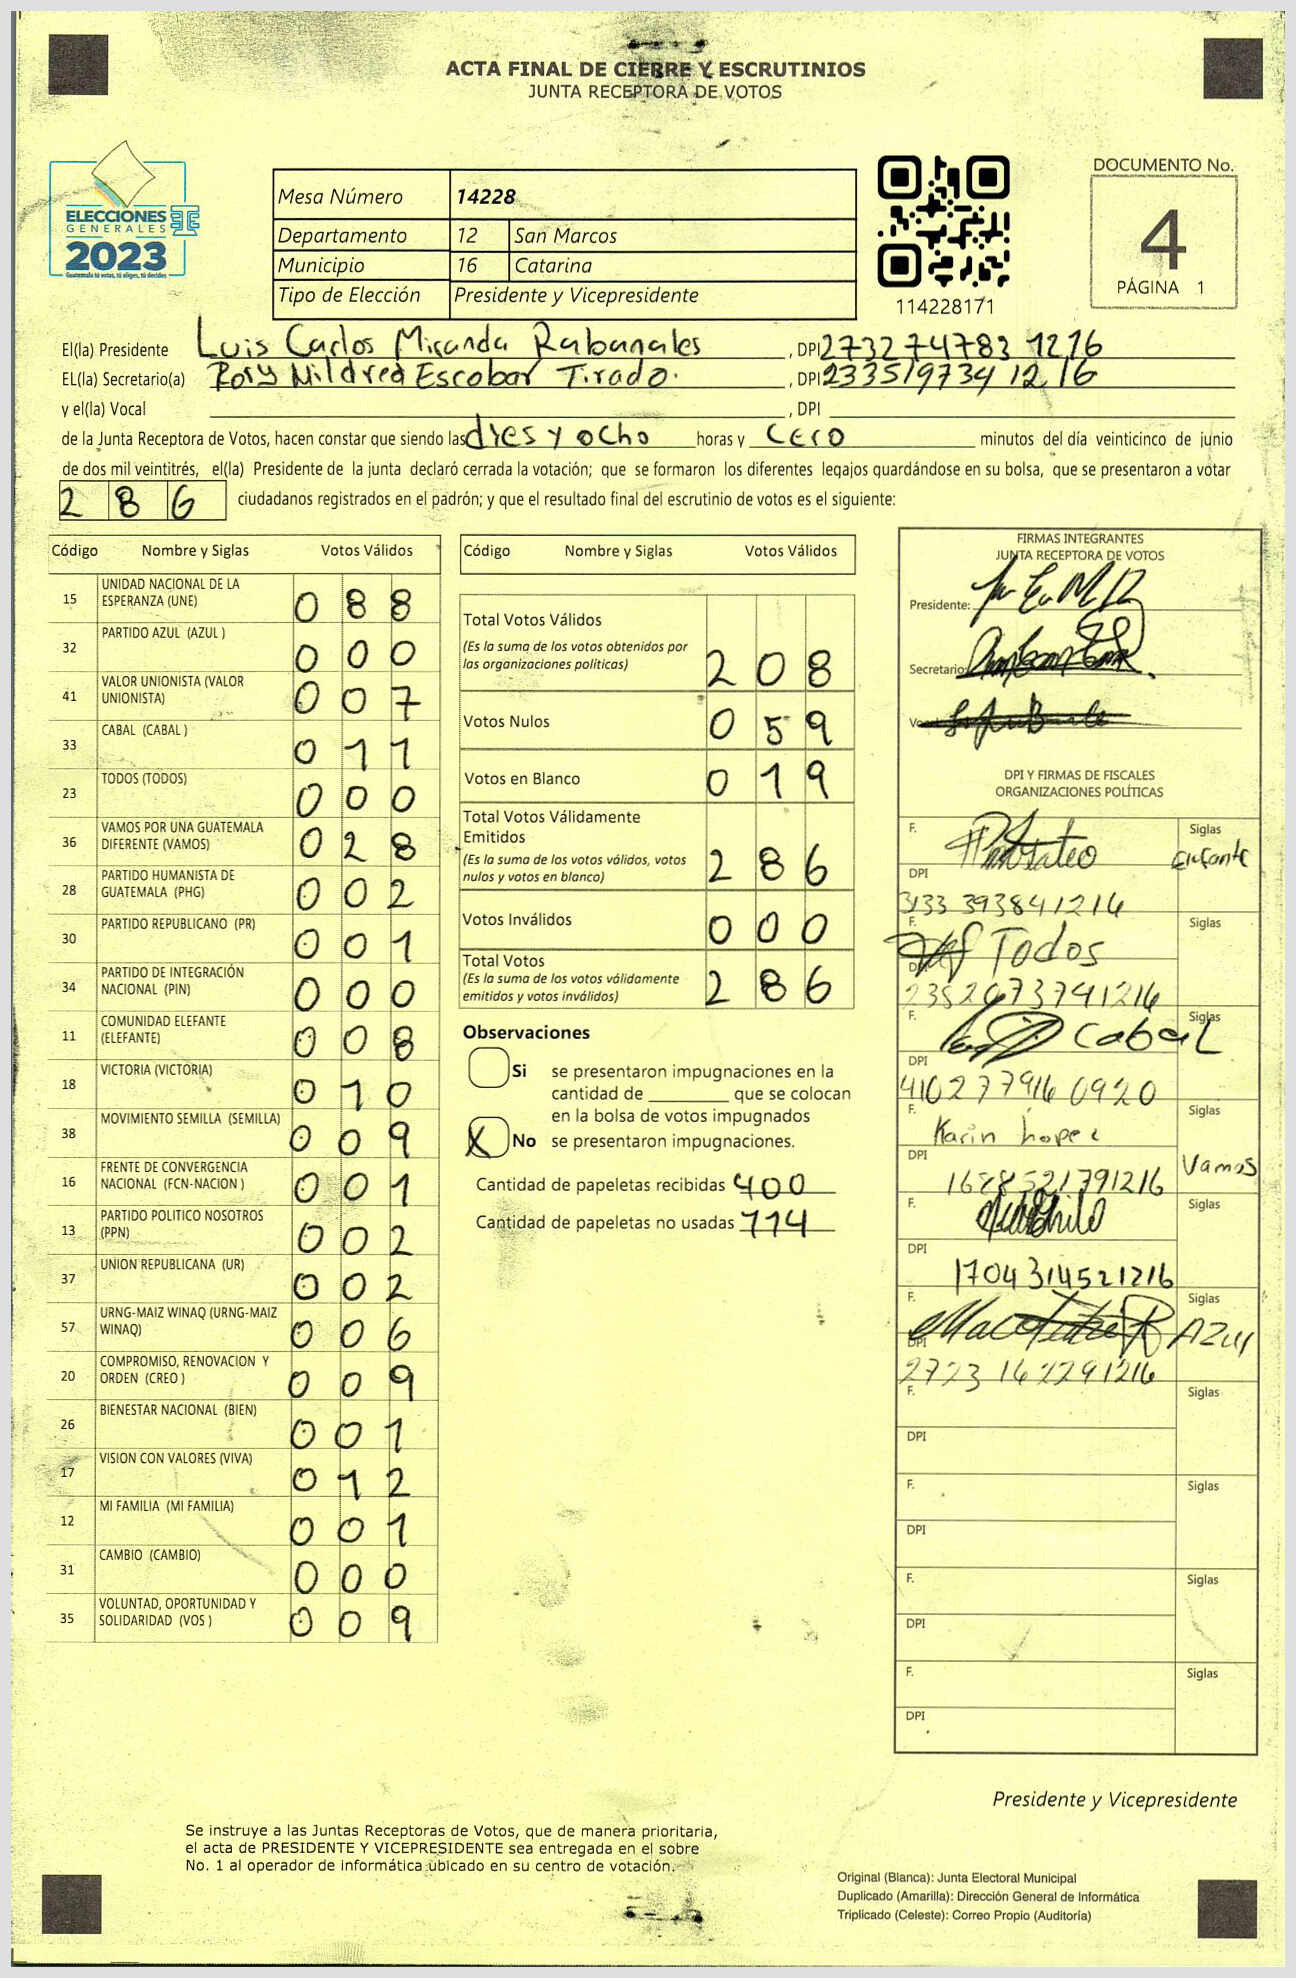 ACTA FINAL DE CIERRE Y ESCRUTINIOS
JUNTA RECEPTORA DE VOTOS
ELECCIONES
GENERALES
2023
Guatemala tú votas, tú eliges, tú decides
Mesa Número 14228
Departamento 12 San Marcos
Municipio 16 Catarina
Tipo de Elección Presidente y Vicepresidente
114228171
DOCUMENTO No.
4
PÁGINA 1
El(la) Presidente Luis Carlos Miranda Rabanales, DPI 2732 74783 1216
EL(la) Secretario(a) Rory Mildred Escobar Tirado., DPI 233519734 1216
y el(la) Vocal , DPI
de la Junta Receptora de Votos, hacen constar que siendo las dies y ocho horas y cero minutos del día veinticinco de junio
de dos mil veintitrés, el(la) Presidente de la junta declaró cerrada la votación; que se formaron los diferentes legajos guardándose en su bolsa, que se presentaron a votar
286 ciudadanos registrados en el padrón; y que el resultado final del escrutinio de votos es el siguiente:
Código Nombre y Siglas Votos Válidos
15 UNIDAD NACIONAL DE LA ESPERANZA (UNE) 088
32 PARTIDO AZUL (AZUL ) 000
41 VALOR UNIONISTA (VALOR UNIONISTA) 007
33 CABAL (CABAL ) 011
23 TODOS (TODOS) 000
36 VAMOS POR UNA GUATEMALA DIFERENTE (VAMOS) 028
28 PARTIDO HUMANISTA DE GUATEMALA (PHG) 002
30 PARTIDO REPUBLICANO (PR) 001
34 PARTIDO DE INTEGRACIÓN NACIONAL (PIN) 000
11 COMUNIDAD ELEFANTE (ELEFANTE) 008
18 VICTORIA (VICTORIA) 010
38 MOVIMIENTO SEMILLA (SEMILLA) 009
16 FRENTE DE CONVERGENCIA NACIONAL (FCN-NACION ) 001
13 PARTIDO POLITICO NOSOTROS (PPN) 002
37 UNION REPUBLICANA (UR) 002
57 URNG-MAIZ WINAQ (URNG-MAIZ WINAQ) 006
20 COMPROMISO, RENOVACION Y ORDEN (CREO ) 009
26 BIENESTAR NACIONAL (BIEN) 001
17 VISION CON VALORES (VIVA) 012
12 MI FAMILIA (MI FAMILIA) 001
31 CAMBIO (CAMBIO) 000
35 VOLUNTAD, OPORTUNIDAD Y SOLIDARIDAD (VOS ) 009
Código Nombre y Siglas Votos Válidos
Total Votos Válidos
(Es la suma de los votos obtenidos por
las organizaciones políticas) 208
Votos Nulos 059
Votos en Blanco 019
Total Votos Válidamente
Emitidos
(Es la suma de los votos válidos, votos
nulos y votos en blanco) 286
Votos Inválidos 000
Total Votos
(Es la suma de los votos válidamente
emitidos y votos inválidos) 286
Observaciones
Si se presentaron impugnaciones en la
cantidad de ________ que se colocan
en la bolsa de votos impugnados
X No se presentaron impugnaciones.
Cantidad de papeletas recibidas 400
Cantidad de papeletas no usadas 114
FIRMAS INTEGRANTES
JUNTA RECEPTORA DE VOTOS
Presidente:
Secretario:
DPI Y FIRMAS DE FISCALES
ORGANIZACIONES POLÍTICAS
F. Siglas
Elefante
DPI
3133 393841216
F. Siglas
Todos
F. Siglas
Cabal
DPI
410277916 0920
F. Siglas
Karin Lopez
DPI Vamos
F. Siglas
DPI
1704 314521216
F. Siglas
AZUL
DPI
F. Siglas
DPI
F. Siglas
DPI
F. Siglas
DPI
F. Siglas
DPI
Presidente y Vicepresidente
Se instruye a las Juntas Receptoras de Votos, que de manera prioritaria,
el acta de PRESIDENTE Y VICEPRESIDENTE sea entregada en el sobre
No. 1 al operador de informática ubicado en su centro de votación.
Original (Blanca): Junta Electoral Municipal
Duplicado (Amarilla): Dirección General de Informática
Triplicado (Celeste): Correo Propio (Auditoría)